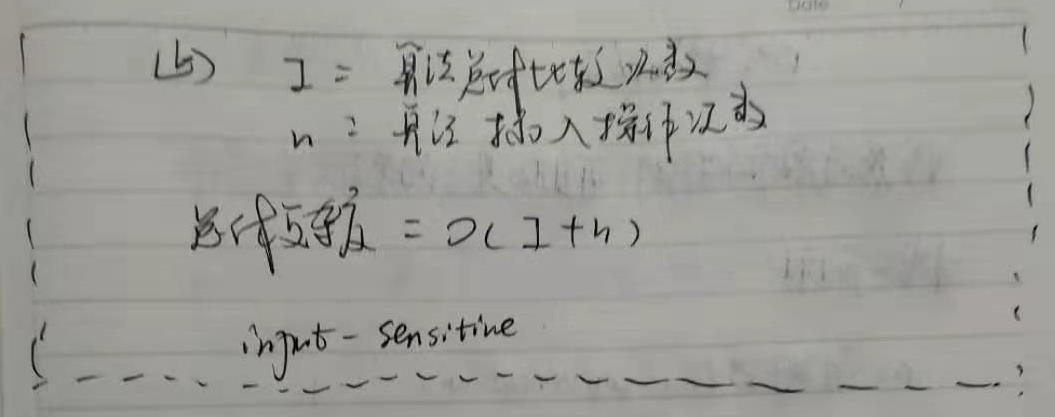 Date /
(b) I = 算法总体比较次数
n = 算法 插入操作次数
总体复杂度 = O(I+n)
input-sensitive